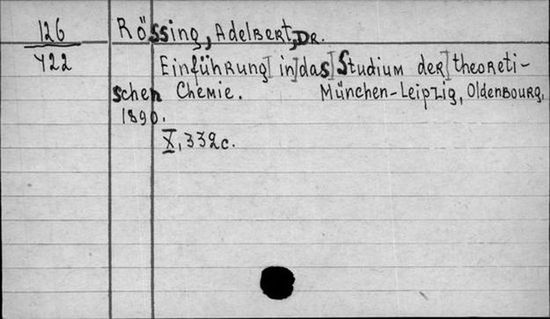 126 Rössing, Adelbert, Dr.
422 Einführung in das Studium der theoreti-
schen Chemie. München-Leipzig, Oldenbourg,
1890.
X, 332c.